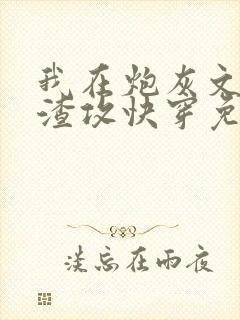 我在炮灰文
渣攻快穿免
淡忘在雨夜